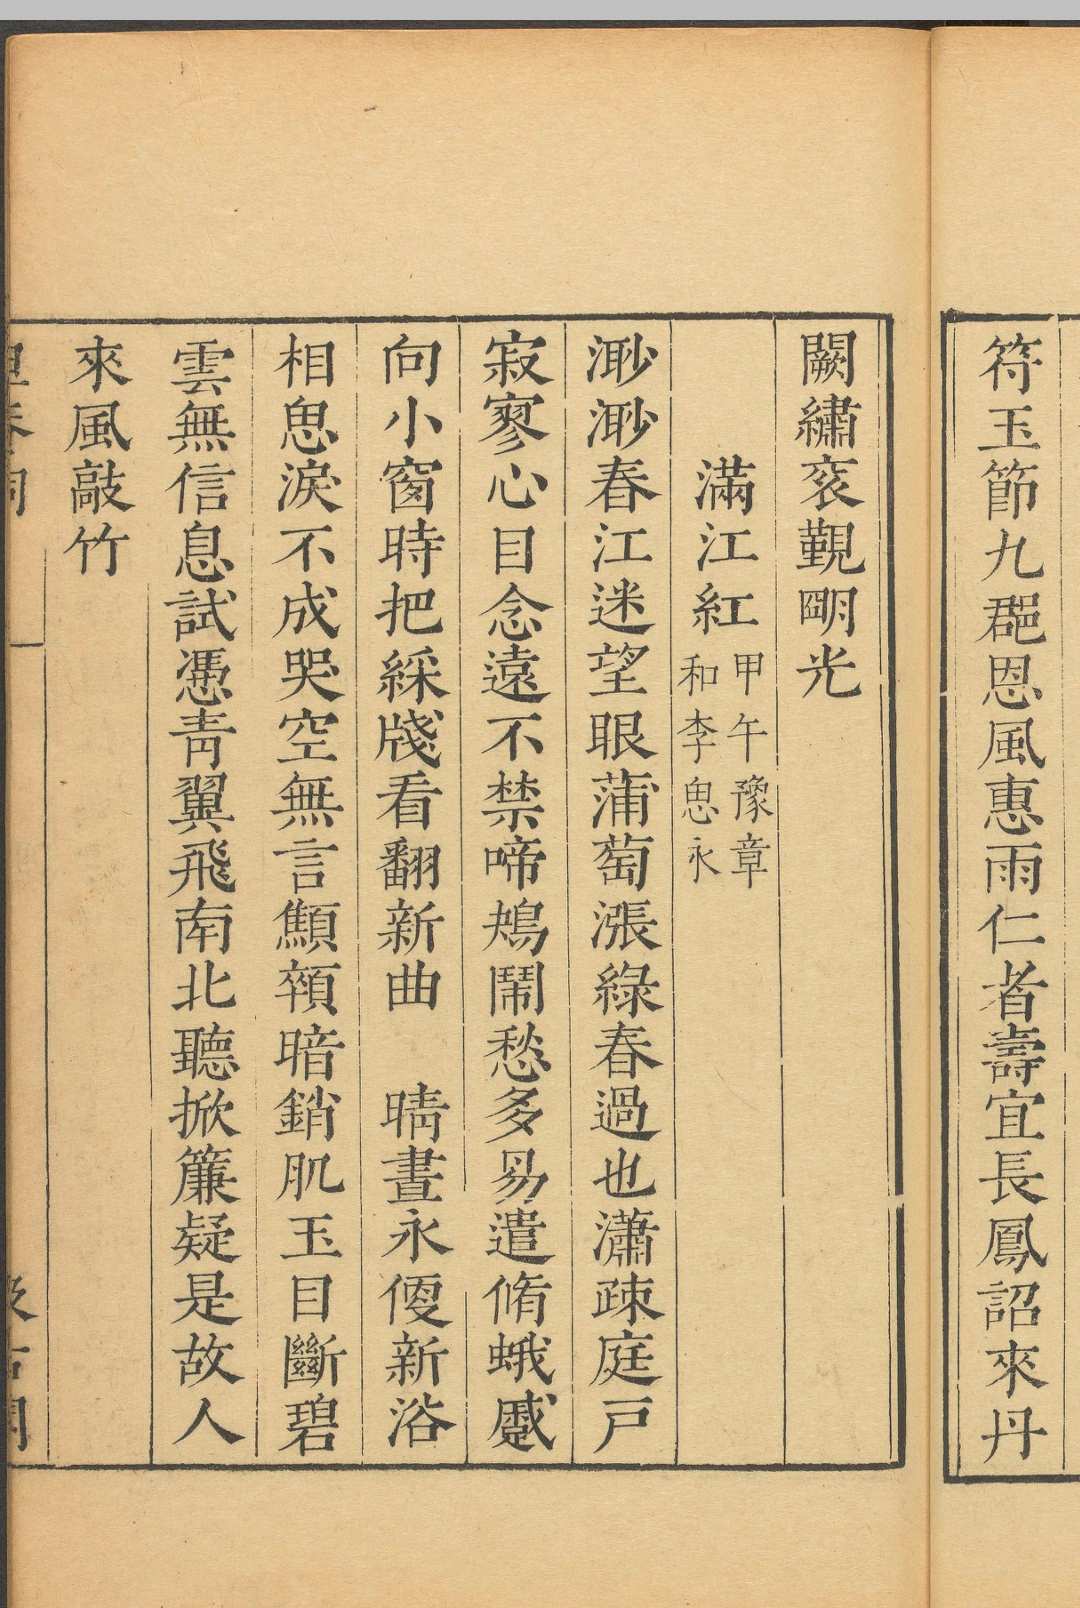 符玉節九郡恩風惠雨仁者壽宜長鳳詔來丹
闕繡衮觀明光
滿江紅 甲午豫章
和李思永
渺渺春江迷望眼蒲萄漲綠春過也瀟疎庭戸
寂寥心目念遠不禁啼鴂鬧愁多昜遣脩蛾蹙
向小窗時把綵牋看翻新曲　晴晝永偠新浴
相思淚不成哭空無言顦顇暗銷肌玉目斷碧
雲無信息試憑靑翼飛南北聽掀簾疑是故人
來風敲竹